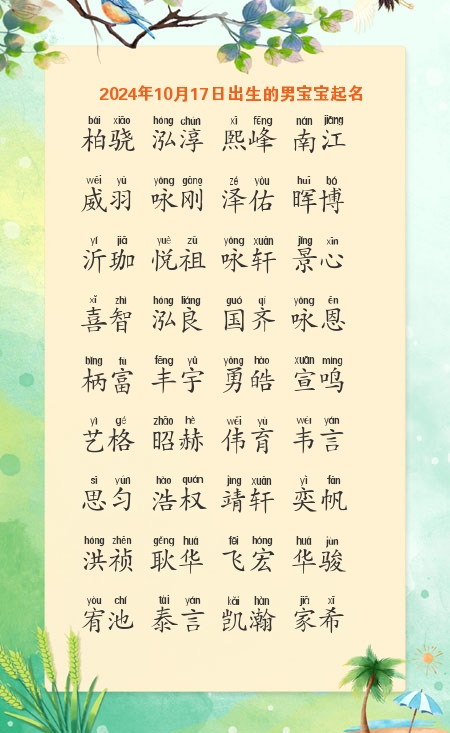 2024年10月17日出生的男宝宝起名
bǎi xiāo hóng chún xī fēng nán jiāng
柏骁 泓淳 熙峰 南江
wēi yǔ yǒng gāng zé yòu huī bó
威羽 咏刚 泽佑 晖博
yí jiā yuè zǔ yǒng xuān jǐng xīn
沂珈 悦祖 咏轩 景心
xǐ zhì hóng liáng guó qí yǒng ēn
喜智 泓良 国齐 咏恩
bǐng fù fēng yǔ yǒng hào xuān míng
柄富 丰宇 勇皓 宣鸣
yì gé zhāo hè wěi yù wéi yán
艺格 昭赫 伟育 韦言
sī yún hào quán jìng xuān yì fān
思匀 浩权 靖轩 奕帆
hóng zhēn gěng huá fēi hóng huá jùn
洪祯 耿华 飞宏 华骏
yòu chí tài yán kǎi hàn jiā xī
宥池 泰言 凯瀚 家希